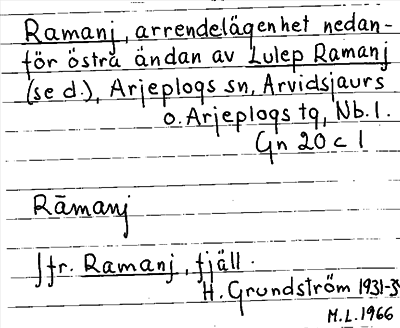 Ramanj, arrendelägenhet nedan-
för östra ändan av Lulep Ramanj
(se d.), Arjeplogs sn, Arvidsjaurs
o. Arjeplogs tg, Nb. l.
Gn 20 c 1
Rāmanj
Jfr. Ramanj, fjäll.
H. Grundström 1931-39
M.L. 1966